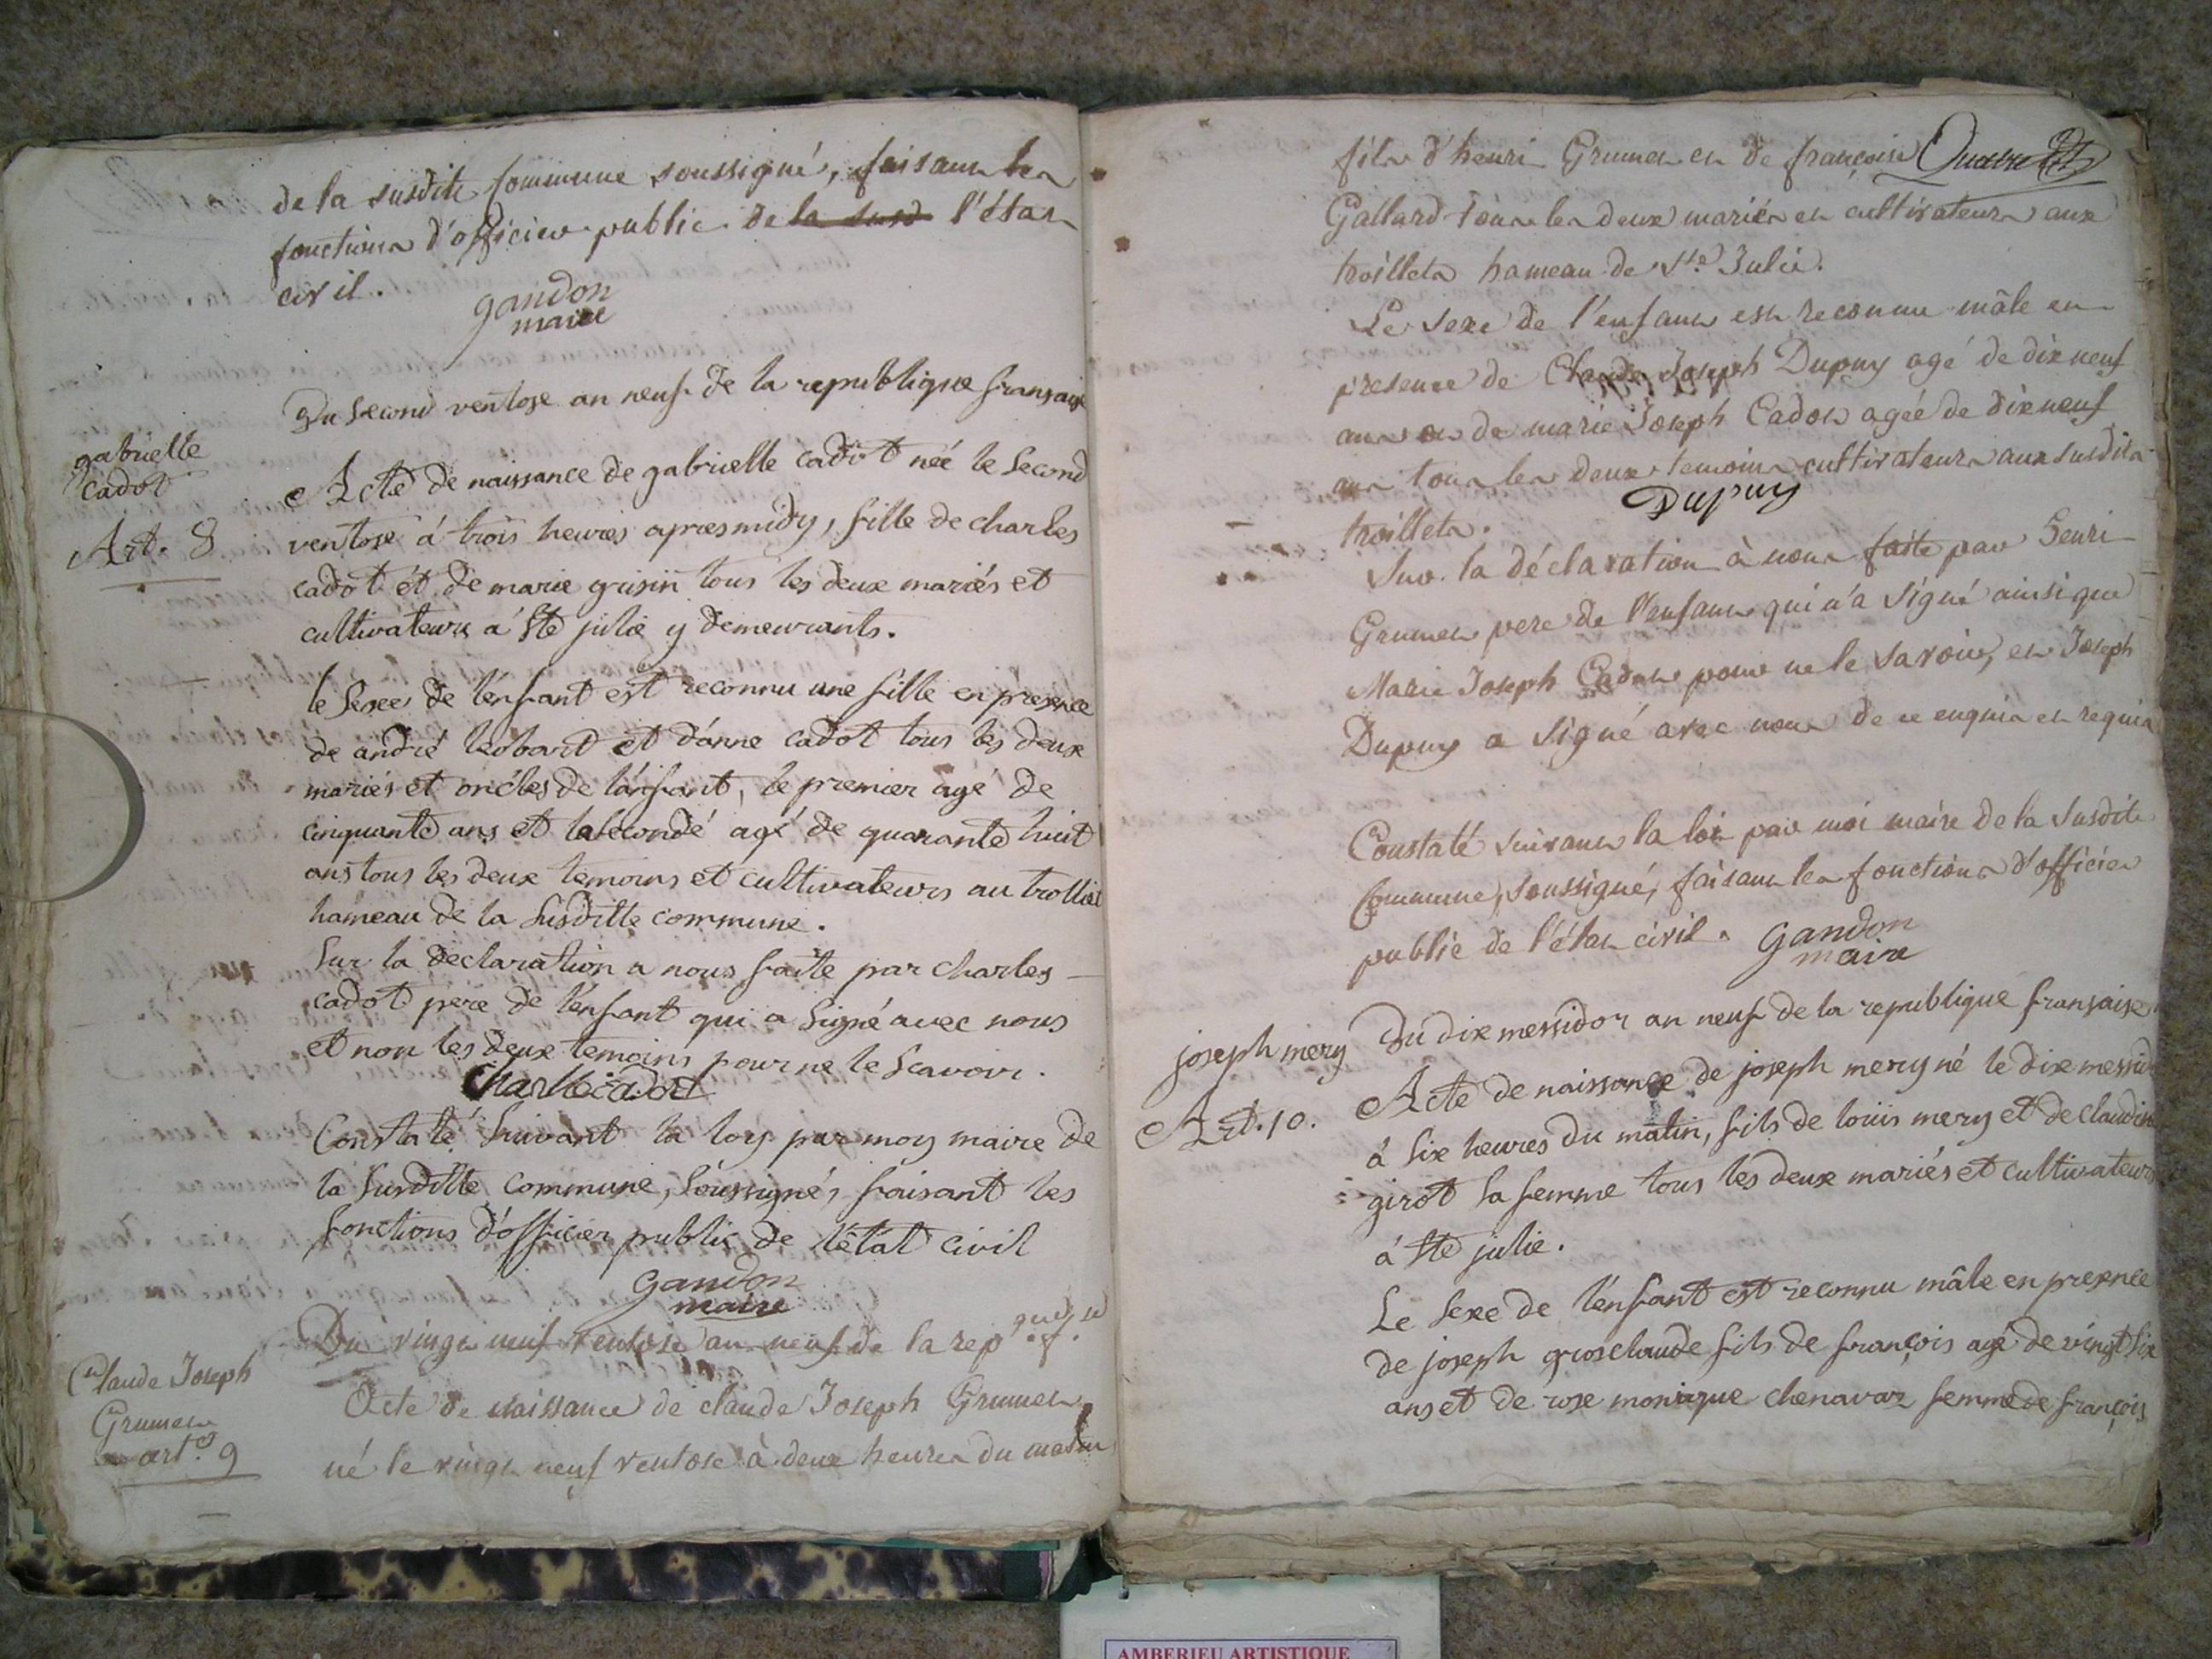 de la susdite Commune soussigné, faisant les
fonctions d'officier public de la susd l'état
civil.
gandon
maire
Du second ventose an neuf de la republique française
gabrielle
cadot
Art. 8
Acte de naissance de gabrielle cadot née le second
ventose á trois heures apres midy, fille de charles
cadot et de marie grisin tous les deux mariés et
cultivateurs á Ste julie y demeurants.
le sexe de lénfant est reconnu une fille en presence
de andré et dánne cadot tous les deux
mariés et oncles de lénfant, le premier agé de
cinquante ans et la seconde agé de quarante huit
ans tous les deux temoins et cultivateurs au trolliet
hameau de la susditte commune.
Sur la declaration a nous faite par charles
cadot pere de lénfant qui a signé avec nous
et non les deux temoins pour ne le scavoir.
Charle cadot
Constaté suivant la loy par moy maire de
la susditte commune, soussigné, faisant les
fonctions dófficier public de létat civil
gandon
maire
Du vingt neuf ventose an neuf de la rep^que f^se
Claude Joseph
Grumet
art. 9
Acte de naissance de claude Joseph Grumet
né le vingt neuf ventose à deux heures du matin
fils d'henri Grumet et de françoise
Gallard tous les deux mariés et cultivateurs aux
troillets hameau de Ste Julie.
Le sexe de l'enfant est reconnu mâle en
presence de Joseph Dupuy agé de dix neuf
ans et de marie Joseph Cadot agée de dix neuf
ans tous les deux temoins cultivateurs aux susdits
troillets.
Dupuy
Sur la déclaration à nous faite par henri
Grumet pere de l'enfant qui n'a signé ainsi que
Marie Joseph Cadot pour ne le savoir, et Joseph
Dupuy a signé avec nous de ce enquis et requis
Constaté suivant la loi par moi maire de la susdite
Commune, soussigné, faisant les fonctions d'officier
public de l'état civil.
gandon
maire
Du dix messidor an neuf de la republique française
joseph mery
Art. 10.
Acte de naissance de joseph mery né le dix messid
á six heures du matin, fils de loüis mery et de claudine
girot sa femme tous les deux mariés et cultivateurs
á Ste julie.
Le sexe de lénfant est reconnu mâle en presence
de joseph grosclaude fils de françois agé de vingt six
ans et de rose monique chenavaz femme de françois
AMBERIEU ARTISTIQUE